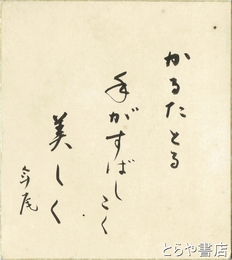 かるたとる
手がすばしこく
美しく
年尾
とらや書店